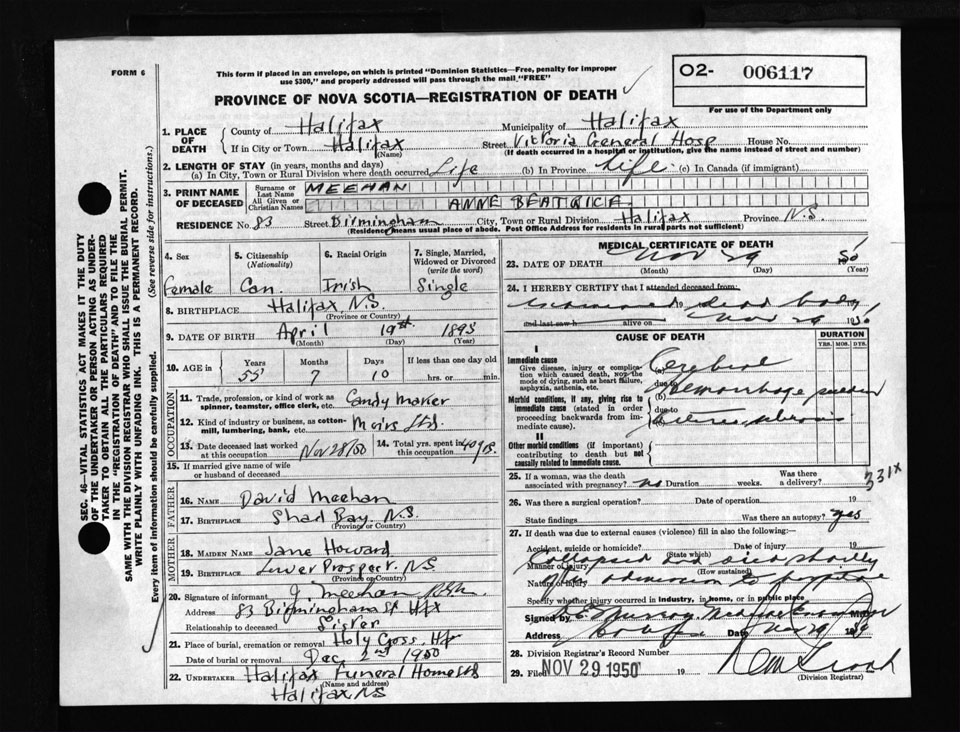 FORM 6
This form if placed in an envelope, on which is printed "Dominion Statistics—Free, penalty for improper
use $300," and properly addressed will pass through the mail "FREE"
O2- 006117
For use of the Department only
PROVINCE OF NOVA SCOTIA—REGISTRATION OF DEATH
1. PLACE OF DEATH
County of Halifax Municipality of Halifax
If in City or Town Halifax (Name) Street Victoria General Hosp House No.
(If death occurred in a hospital or institution, give the name instead of street and number)
2. LENGTH OF STAY (in years, months and days)
(a) In City, Town or Rural Division where death occurred Life (b) In Province Life (c) In Canada (if immigrant)
3. PRINT NAME OF DECEASED
Surname or Last Name MEEHAN
All Given or Christian Names ANNE BEATRICE
RESIDENCE No. 83 Street Birmingham City, Town or Rural Division Halifax Province N.S.
(Residence means usual place of abode. Post Office Address for residents in rural parts not sufficient)
4. Sex
Female
5. Citizenship (Nationality)
Can.
6. Racial Origin
Irish
7. Single, Married, Widowed or Divorced (write the word)
Single
8. BIRTHPLACE Halifax N.S.
(Province or Country)
9. DATE OF BIRTH April 19th 1895
(Month) (Day) (Year)
10. AGE in Years Months Days If less than one day old
55 7 10 hrs. or min.
OCCUPATION
11. Trade, profession, or kind of work as spinner, teamster, office clerk, etc. Candy maker
12. Kind of industry or business, as cotton-mill, lumbering, bank, etc. Moirs Ltd.
13. Date deceased last worked at this occupation Nov 28/50
14. Total yrs. spent in this occupation 40 yrs.
15. If married give name of wife or husband of deceased
FATHER
16. NAME David Meehan
17. BIRTHPLACE Shad Bay N.S.
(Province or Country)
MOTHER
18. MAIDEN NAME Jane Howard
19. BIRTHPLACE Lower Prospect. N.S
(Province or Country)
20. Signature of informant J. Meehan
Address 83 Birmingham St Hfx
Relationship to deceased Sister
21. Place of burial, cremation or removal Holy Cross. Hfx
Date of burial or removal Dec 2nd 1950
22. UNDERTAKER Halifax Funeral Home Ltd
(Name and address)
Halifax N.S
MEDICAL CERTIFICATE OF DEATH
23. DATE OF DEATH Nov 29 50
(Month) (Day) (Year)
24. I HEREBY CERTIFY that I attended deceased from:
examined 19 dead body
and last saw h alive on Nov 29 1950
CAUSE OF DEATH
DURATION
YRS. MOS. DYS.
I
Immediate cause
Give disease, injury or complication which caused death, not the mode of dying, such as heart failure, asphyxia, asthenia, etc.
(a) Cerebral
due to Hemorrhage sudden
Morbid conditions, if any, giving rise to immediate cause (stated in order proceeding backwards from immediate cause).
due to
II
Other morbid conditions (if important) contributing to death but not causally related to immediate cause.
331X
25. If a woman, was the death associated with pregnancy? no Duration weeks. Was there a delivery?
26. Was there a surgical operation? Date of operation 19
State findings Was there an autopsy? yes
27. If death was due to external causes (violence) fill in also the following:
Accident, suicide or homicide? Date of injury 19
(State which)
Manner of injury collapsed and died shortly
(How sustained)
Nature of injury after admission to hospital
Specify whether injury occurred in Industry, in home, or in public place
Signed by Murray Medical Examiner
Address Date Nov 29 1950
28. Division Registrar's Record Number
29. Filed NOV 29 1950 19
(Division Registrar)
SEC. 46—VITAL STATISTICS ACT MAKES IT THE DUTY
OF THE UNDERTAKER OR PERSON ACTING AS UNDER-
TAKER TO OBTAIN ALL THE PARTICULARS REQUIRED
IN THE "REGISTRATION OF DEATH" AND TO FILE THE
SAME WITH THE DIVISION REGISTRAR WHO SHALL ISSUE THE BURIAL PERMIT.
WRITE PLAINLY WITH UNFADING INK. THIS IS A PERMANENT RECORD.
Every item of information should be carefully supplied. (See reverse side for instructions.)